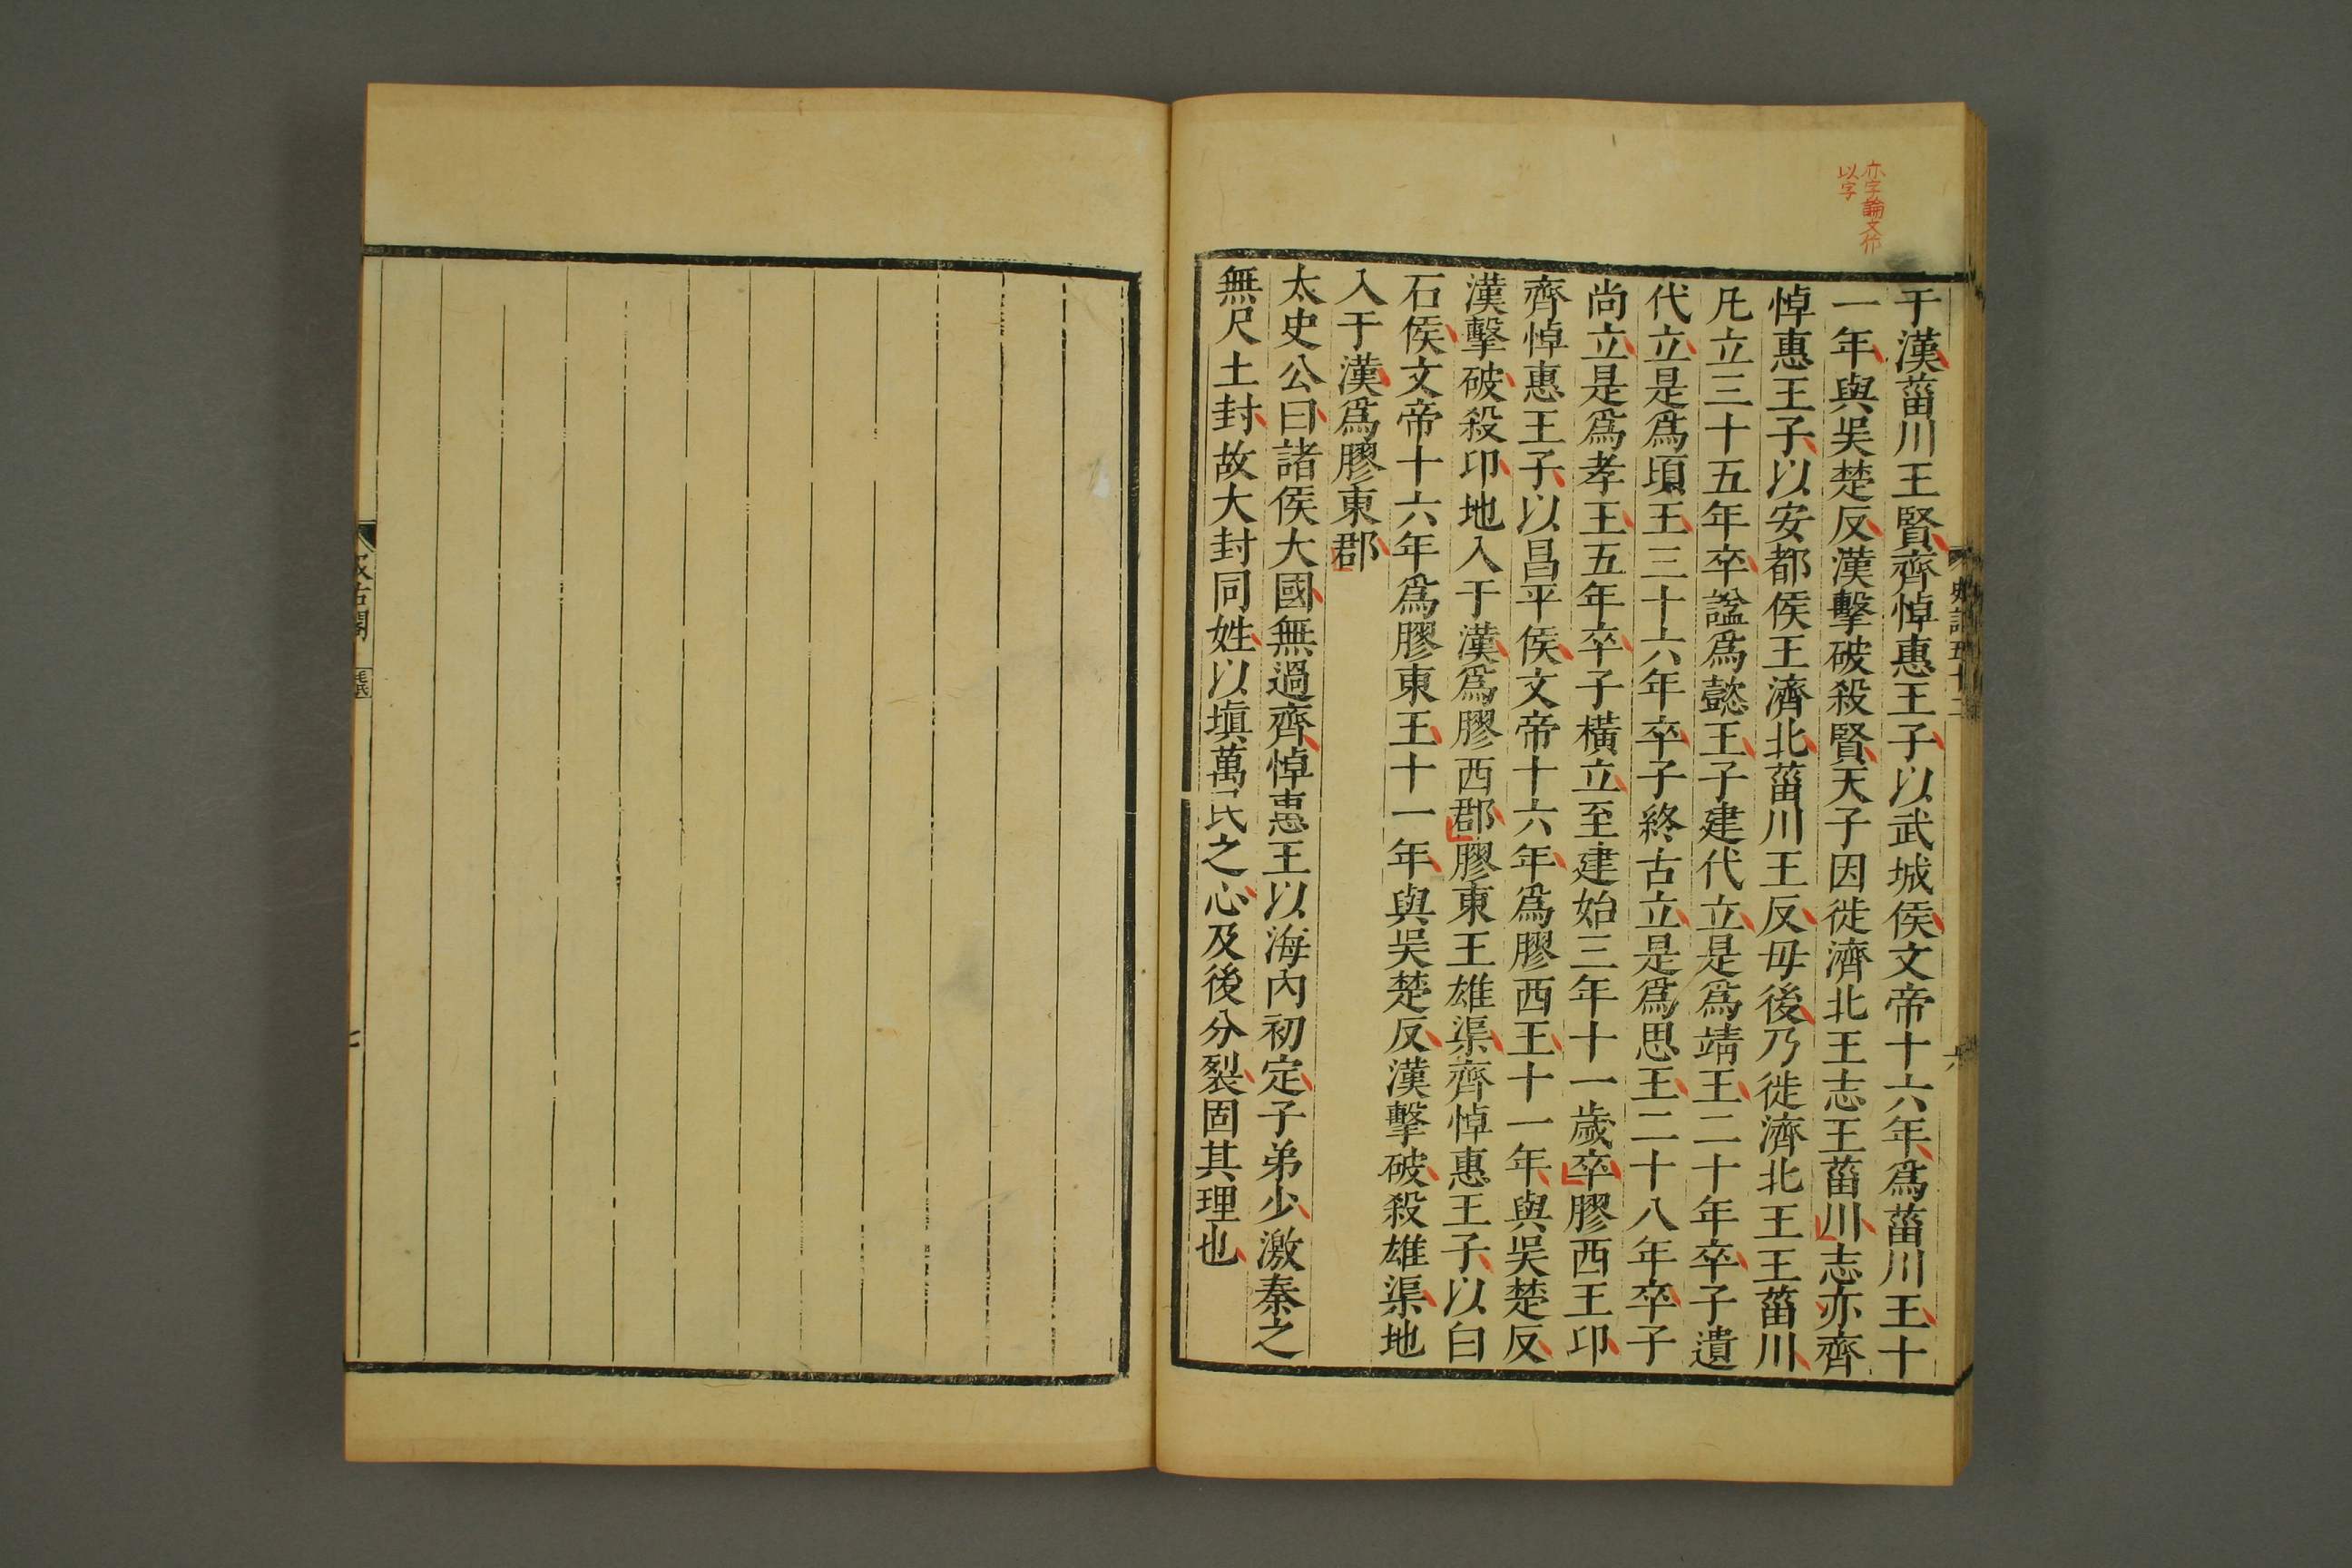 亦字論文作
以字
史記五十二
六
于漢菑川王賢齊悼惠王子以武城侯文帝十六年爲菑川王十
一年與吳楚反漢擊破殺賢天子因徙濟北王志王菑川志亦齊
悼惠王子以安都侯王濟北菑川王反毋後乃徙濟北王王菑川
凡立三十五年卒諡爲懿王子建代立是爲靖王二十年卒子遺
代立是爲頃王三十六年卒子終古立是爲思王二十八年卒子
尚立是爲孝王五年卒子橫立至建始三年十一歲卒膠西王卬
齊悼惠王子以昌平侯文帝十六年爲膠西王十一年與吳楚反
漢擊破殺卬地入于漢爲膠西郡膠東王雄渠齊悼惠王子以白
石侯文帝十六年爲膠東王十一年與吳楚反漢擊破殺雄渠地
入于漢爲膠東郡
太史公曰諸侯大國無過齊悼惠王以海內初定子弟少激秦之
無尺土封故大封同姓以塡萬民之心及後分裂固其理也
汲古閣
毛氏
七